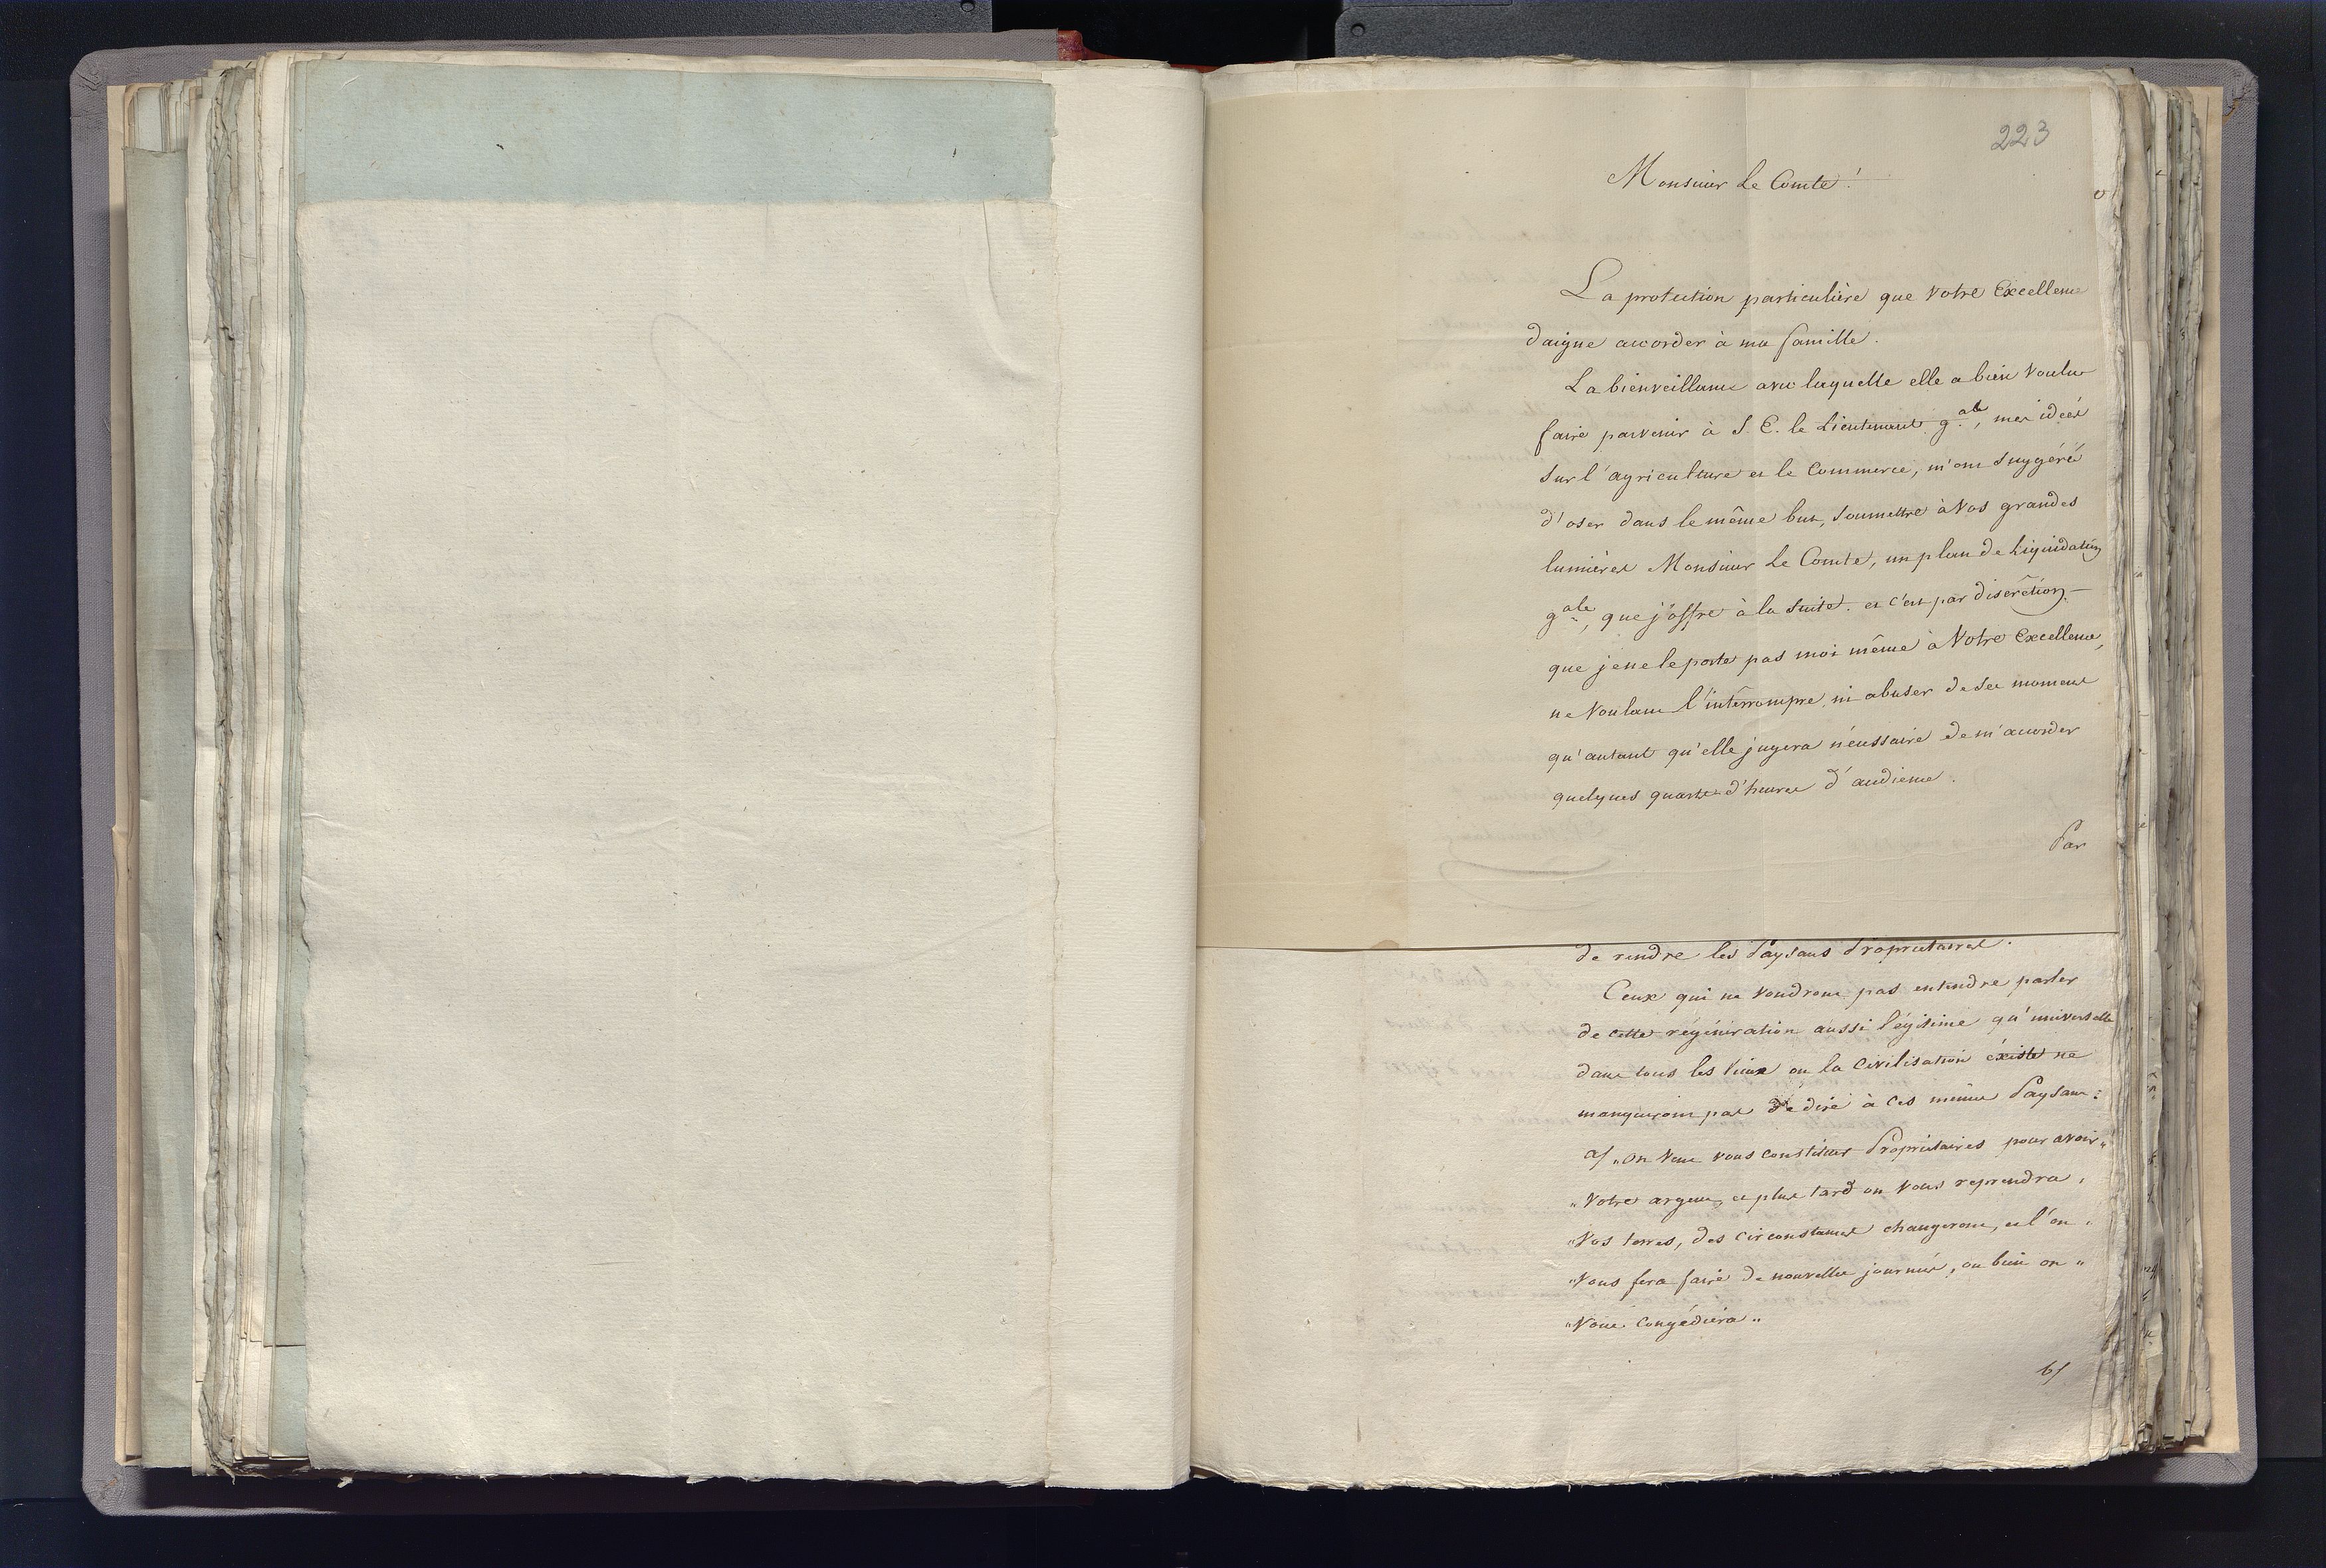 223
Monsieur Le Comte!
La protection particulière que Votre Excellence
daigne accorder à ma famille.
La bienveillance avec laquelle elle a bien Voulu
faire parvenir à S. E. le Lieutenant g.ale, mes idées
Sur l'agriculture et le Commerce, m'ont Suggéré
d'oser dans le même but, Soumettre à Vos grandes
lumières Monsieur Le Comte, un plan de Liquidation
g.ale, que j'offre à la Suite. et c'est par discrêtion,—
que je ne le porte pas moi même à Votre Excellence,
ne Voulant l'intêrrompre, ni abuser de Ses moments
qu'autant qu'elle jugera nécessaire de m'acorder
quelques quarts d'heures d'audience.
Par
de rendre les Paysans Propriétaires.
Ceux qui ne Voudront pas entendre parler
de cette régénération aussi légitime qu'universelle
dans tous les lieux ou la Civilisation éxiste ne
manqueront pas de dire à Ces mêmes Paysans:
a/ „On Veut vous constituer Propriétaires pour avoir„
„Votre argent, et plus tard on Vous reprendra„
„Vos terres, des Circonstances changeront, et l'on„
„Vous fera faire de nouvelles journées, ou bien on„
„Vous Congédiera„
b/